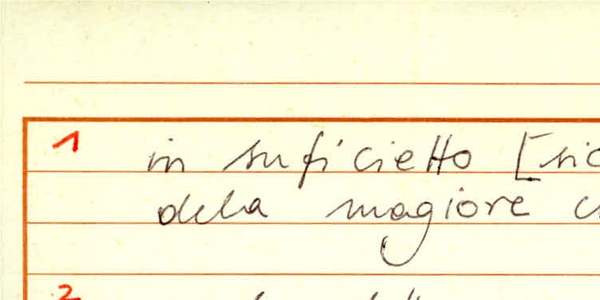 1 in suficietto [sic
dela magiore c
2